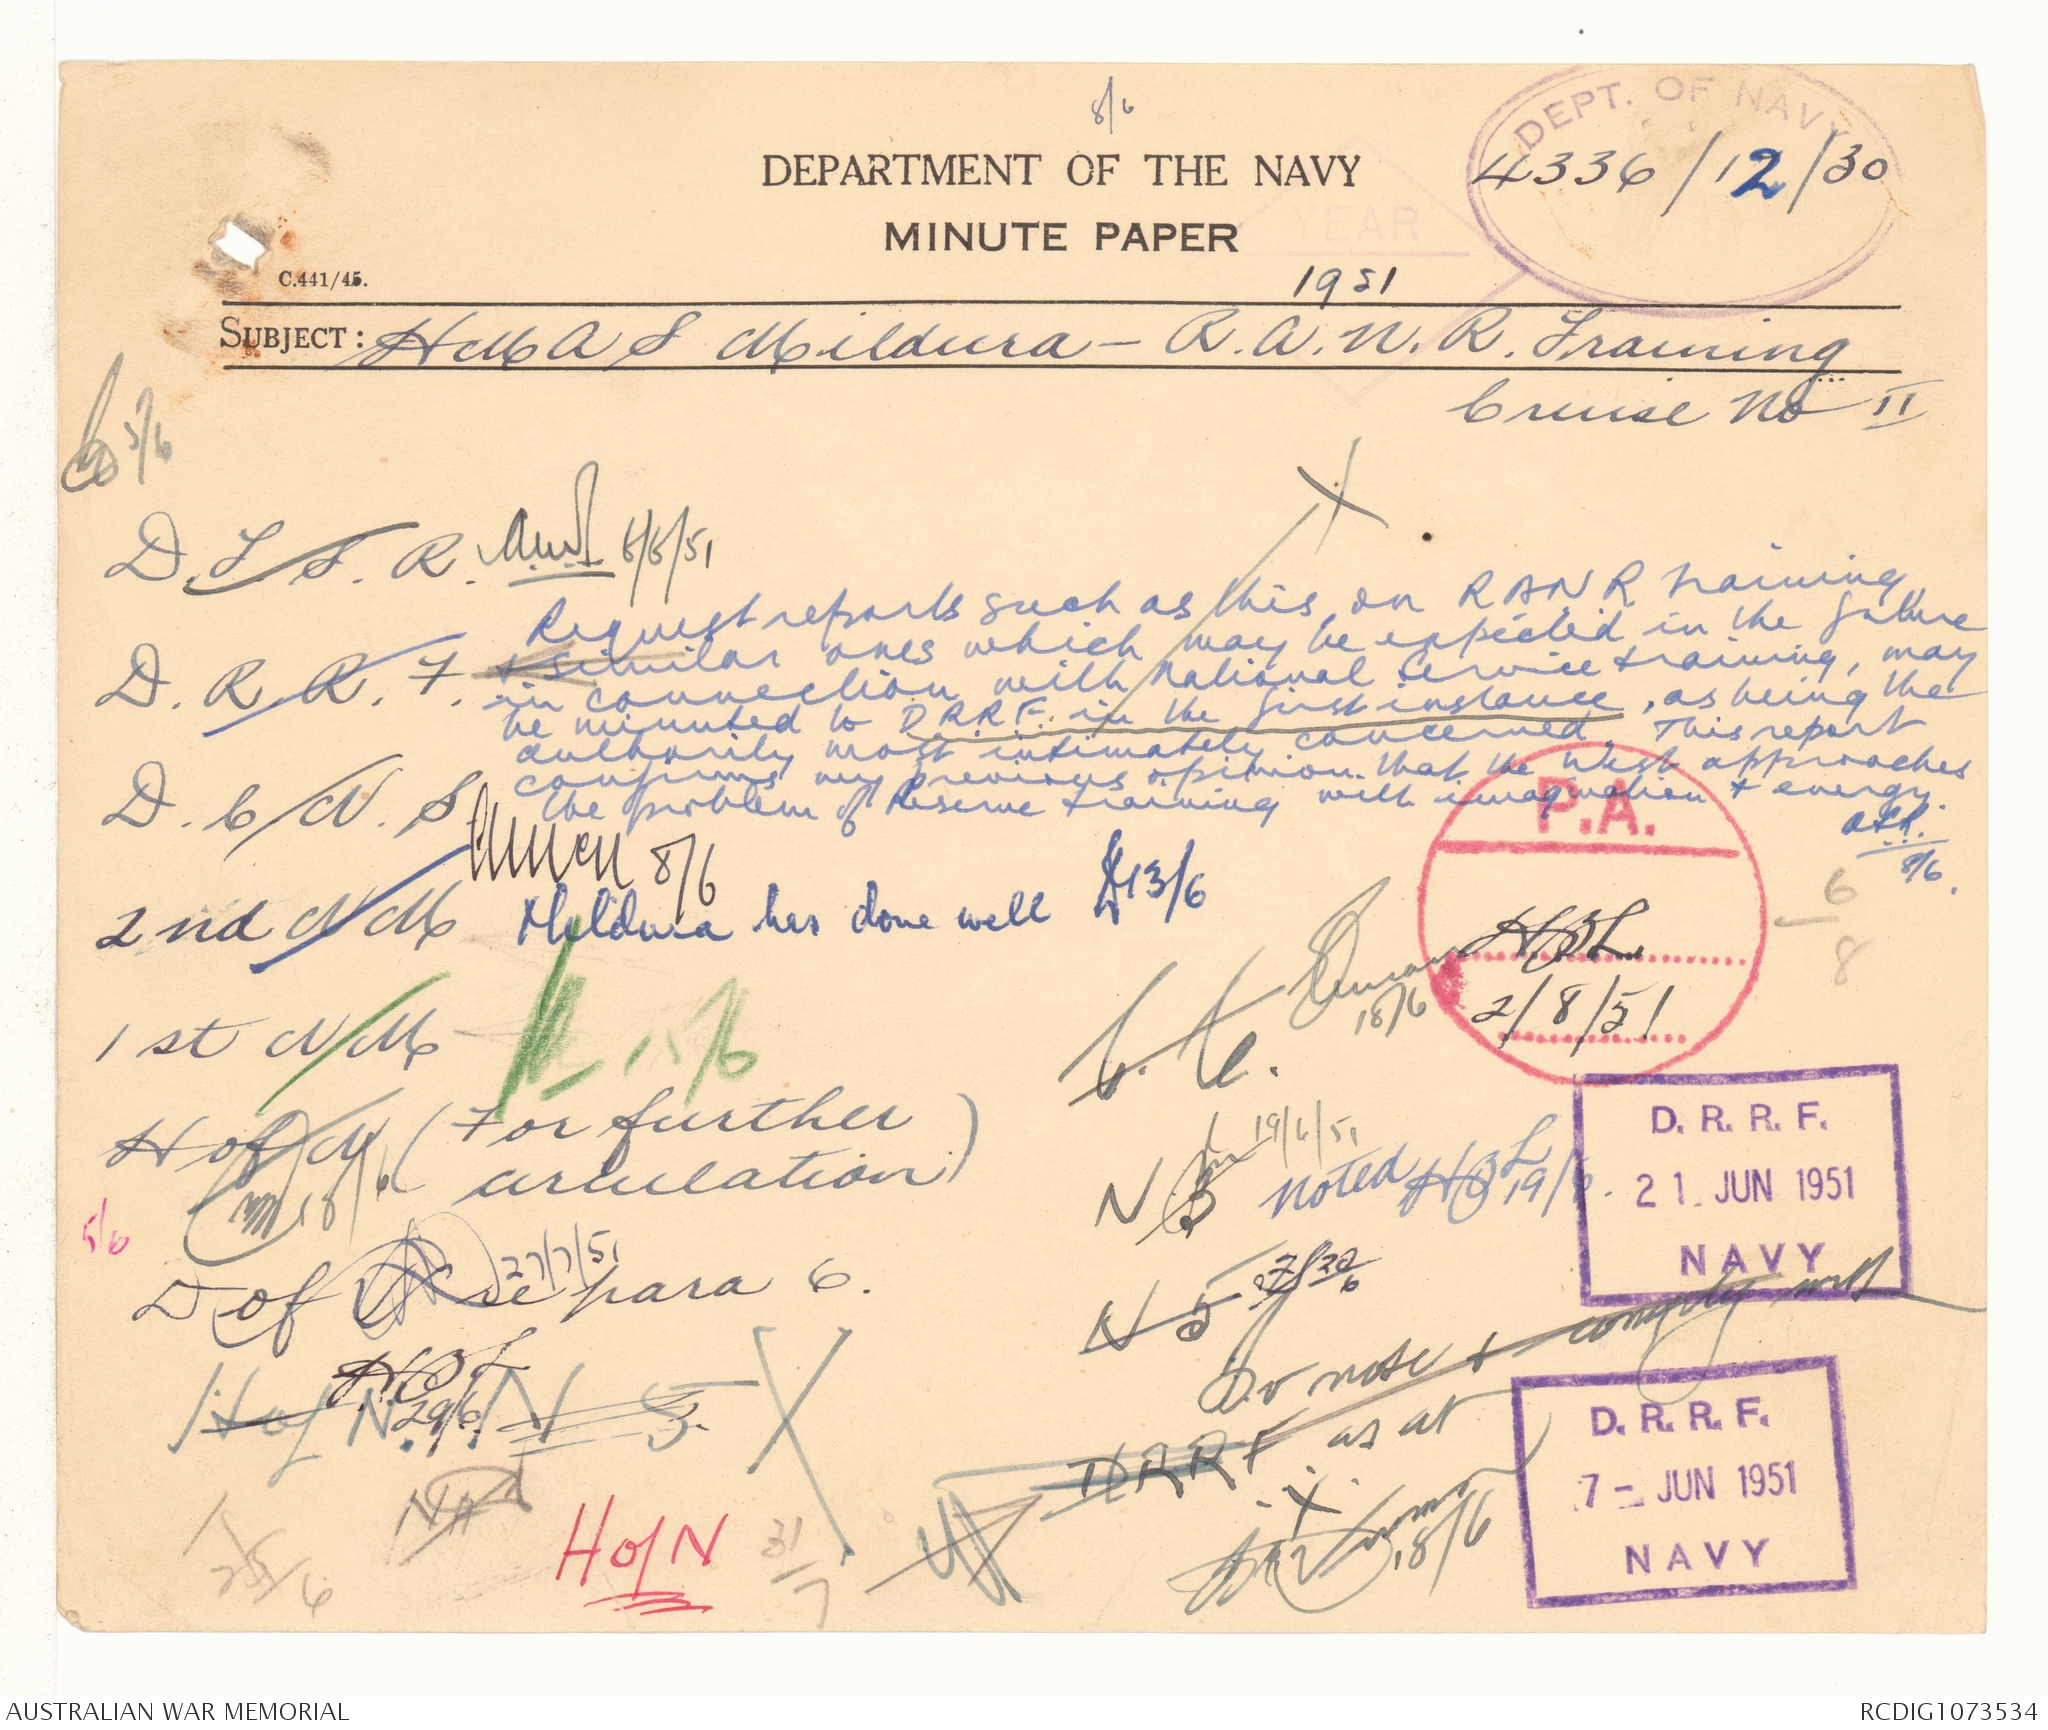 8/6
DEPT. OF NAVY
4336/12/30
DEPARTMENT OF THE NAVY
MINUTE PAPER
YEAR
1951
C.441/45.
SUBJECT: HMAS Mildura - R.A.N.R. Training
Cruise No II
5/6
D.T.S.R. 6/6/51
Request reports such as this, on RANR training,
D.R.R.F. & similar ones which may be expected in the future
in connection with National Service training, may
be minuted to DRRF. in the first instance, as being the
authority most intimately concerned. This report
confirms my previous opinion that the West approaches
the problem of Reserve training with imagination & energy.
8/6.
D.C.N.S. 8/6
P.A.
HBL
2/8/51
6
8
2nd NM Mildura has done well 13/6
1st NM 15/6
18/6
H of N (For further
circulation)
18/6
19/6/51
N3 noted HBL 19/6.
D.R.R.F.
21 JUN 1951
NAVY
5/6
27/7/51
D of re para 6.
N5
To note & comply with
DRRF as at
X
18/6
HBL
29/6
H of N. N 5 X
D.R.R.F.
7- JUN 1951
NAVY
25/6
H of N
31/7
AUSTRALIAN WAR MEMORIAL
RCDIG1073534